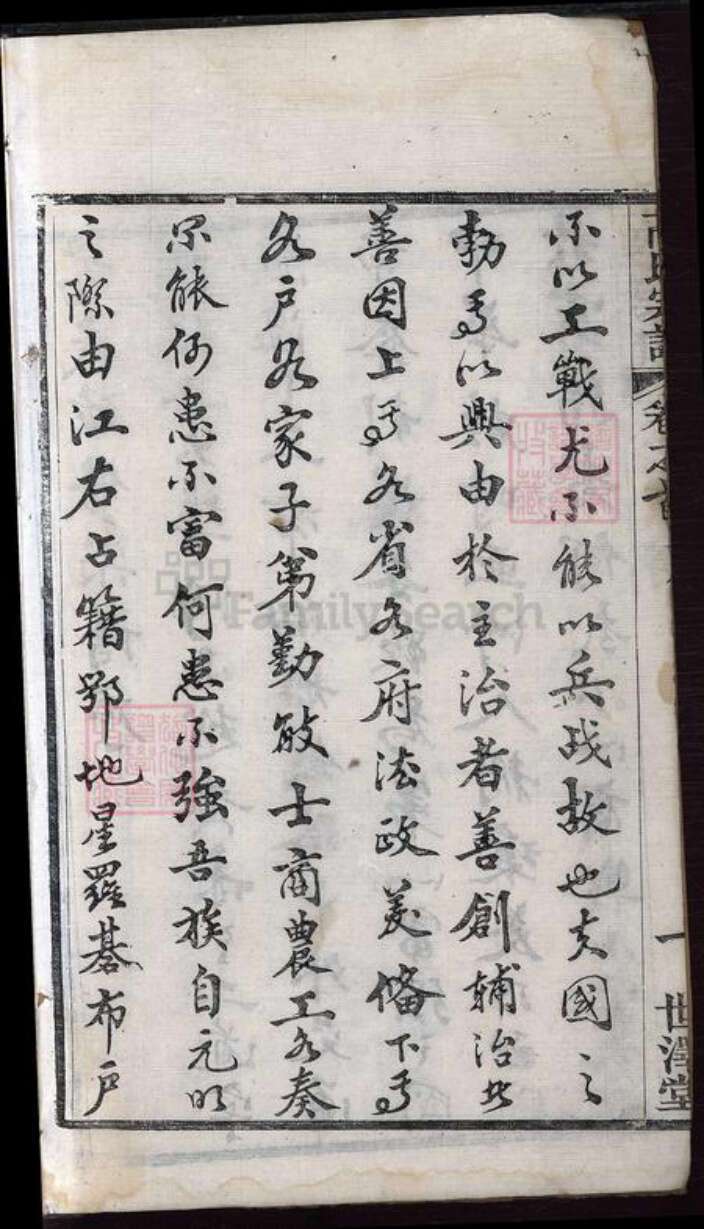 不以工戰尤不能以兵战故也夫國之
勃焉以興由於主治者善創輔治者
善因上焉各省各府法政美備下焉
各户各家子弟勤敏士商農工各奏
尔能何患不富何患不強吾族自元明
之際由江右占籍鄂地星羅碁布户
宗譜
卷之首
一
世澤堂
FamilySearch